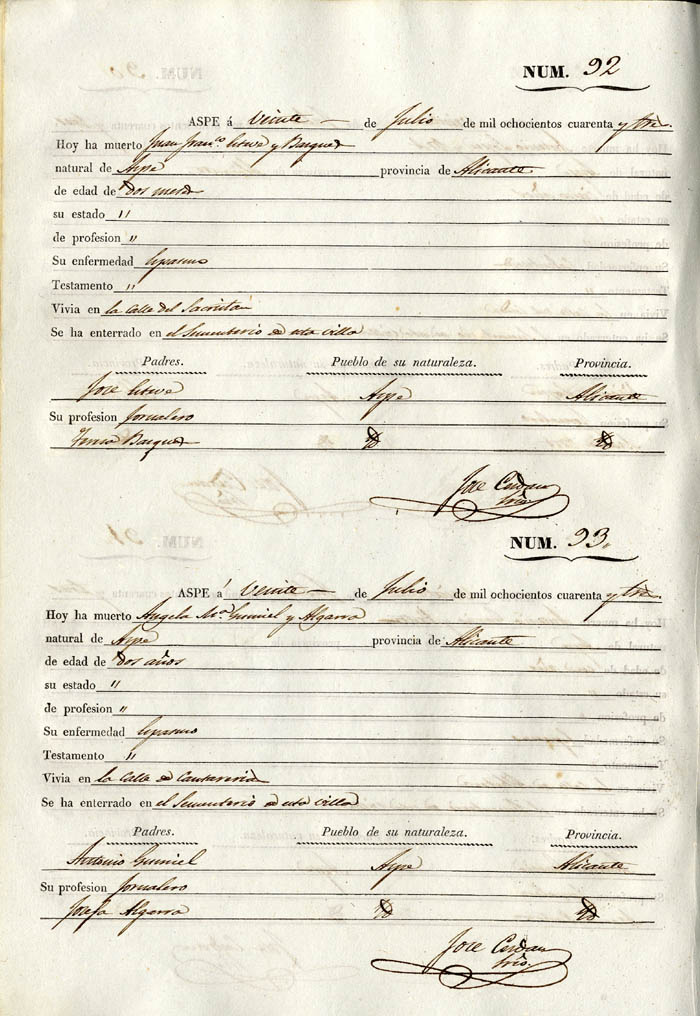 NUM. 92
ASPE á Veinte de Julio de mil ochocientos cuarenta y tres.
Hoy ha muerto Juan Fran.co y
natural de Aspe provincia de Alicante
de edad de dos meses
su estado "
de profesion "
Su enfermedad Espasmo
Testamento "
Vivia en la calle del Sacristan
Se ha enterrado en el Sementerio de esta villa
Padres. Pueblo de su naturaleza. Provincia.
Jose Aspe Alicante
Su profesion Jornalero
Teresa
Jose Cerdan
Srio.
NUM. 93.
ASPE á Veinte de Julio de mil ochocientos cuarenta y tres.
Hoy ha muerto Angela M.a Gumiel y Algarra
natural de Aspe provincia de Alicante
de edad de dos años
su estado "
de profesion "
Su enfermedad Espasmo
Testamento "
Vivia en la Calle de Cantareria
Se ha enterrado en el Sementerio de esta villa
Padres. Pueblo de su naturaleza. Provincia.
Antonio Gumiel Aspe Alicante
Su profesion Jornalero
Josefa Algarra
Jose Cerdan
Srio.